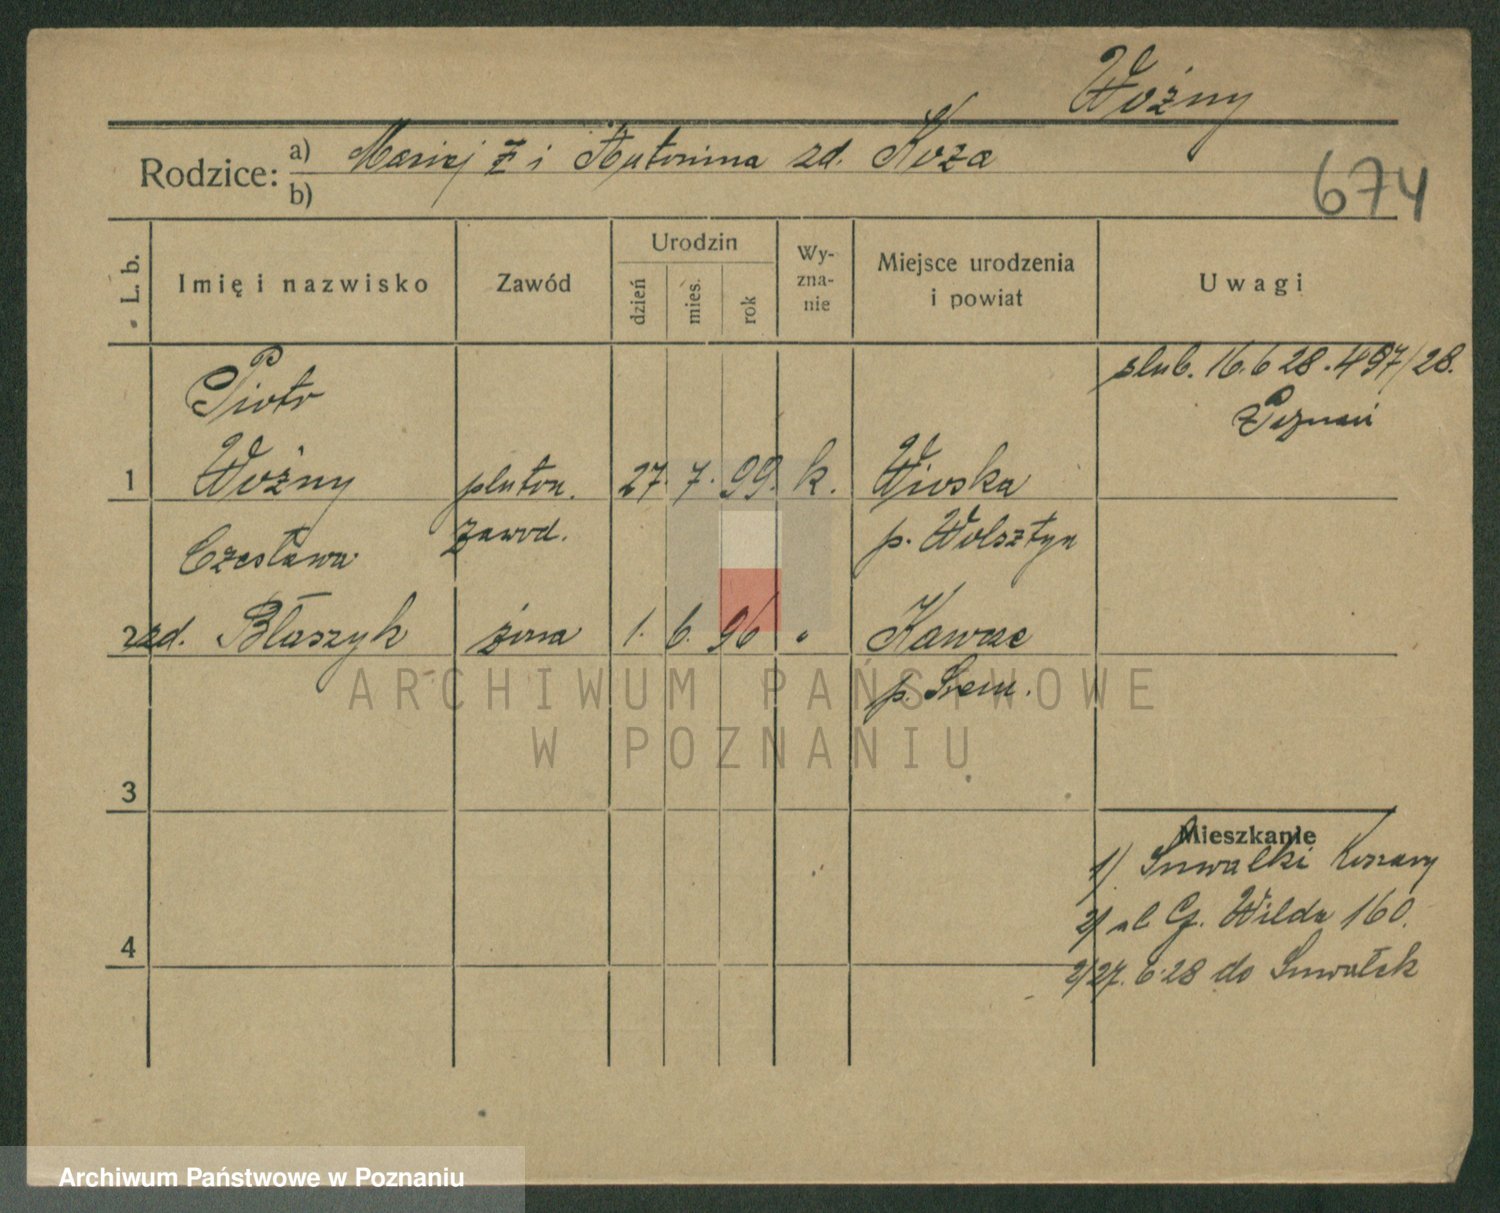 Woźny
Rodzice: a) Maciej i Antonina zd. Koza
b)
674
L. b.
Imię i nazwisko
Zawód
Urodzin
dzień
mies.
rok
Wy-
zna-
nie
Miejsce urodzenia
i powiat
Uwagi
ślub. 16.6 28. 497/28.
Poznań
Piotr
1 Woźny pluton. 27. 7. 99. k. Wioska
zawod. p. Wolsztyn
Czesława
2 zd. Błaszyk żona 1. 6. 96 " Kawcze
p. Śrem.
ARCHIWUM PAŃSTWOWE
W POZNANIU
3
Mieszkanie
1) Suwałki Koszary
2) G. Wilda 160.
4
27. 6 28 do Suwałk
Archiwum Państwowe w Poznaniu